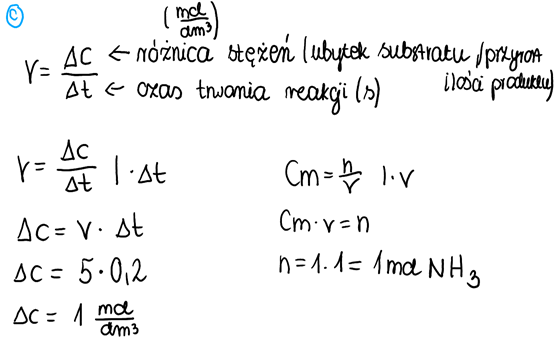 c
(mol/dm³)
V = Δc/Δt ← różnica stężeń (ubytek substratu / przyrost ilości produktu)
← czas trwania reakcji (s)
V = Δc/Δt | · Δt
Δc = V · Δt
Δc = 5 · 0,2
Δc = 1 mol/dm³
Cm = n/v | · v
Cm · v = n
n = 1 · 1 = 1 mol NH₃